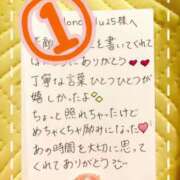 ①
lu25様へ
を書いてくれ
ありがとう
丁寧な言葉ひとつひとつが
嬉しかったよ
ちょっと照れちゃったけど
めちゃくちゃ励みになった
あの時間を大切に思って
くれてありがとう